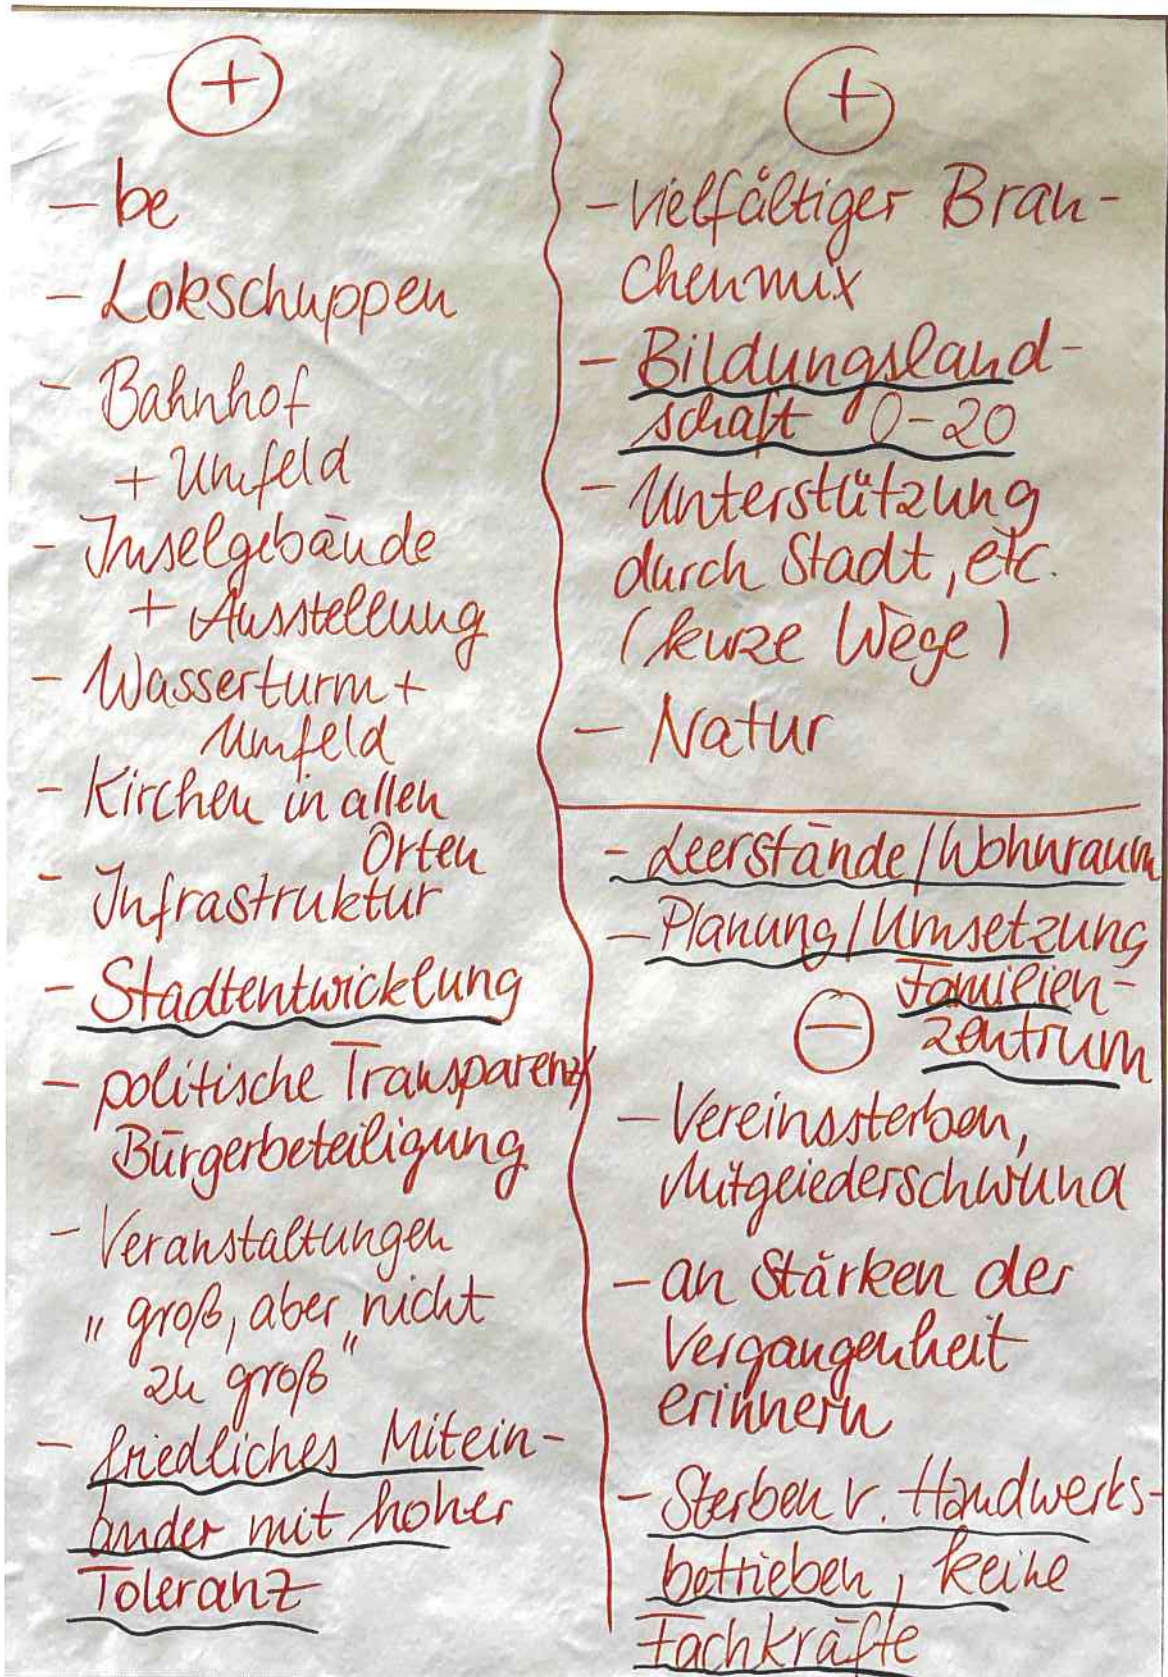 +
- be
- Lokschuppen
- Bahnhof
+ Umfeld
- Inselgebäude
+ Ausstellung
- Wasserturm +
Umfeld
- Kirchen in allen
Orten
- Infrastruktur
- Stadtentwicklung
- politische Transparenz/
Bürgerbeteiligung
- Veranstaltungen
"groß, aber nicht
zu groß"
- friedliches Mitein-
ander mit hoher
Toleranz
+
- vielfältiger Bran-
chenmix
- Bildungsland-
schaft 0-20
- Unterstützung
durch Stadt, etc.
(kurze Wege)
- Natur
- Leerstände/Wohnraum
- Planung/Umsetzung
Familien-
- zentrum
- Vereinssterben,
Mitgliederschwund
- an Stärken der
Vergangenheit
erinnern
- Sterben v. Handwerks-
betrieben, keine
Fachkräfte